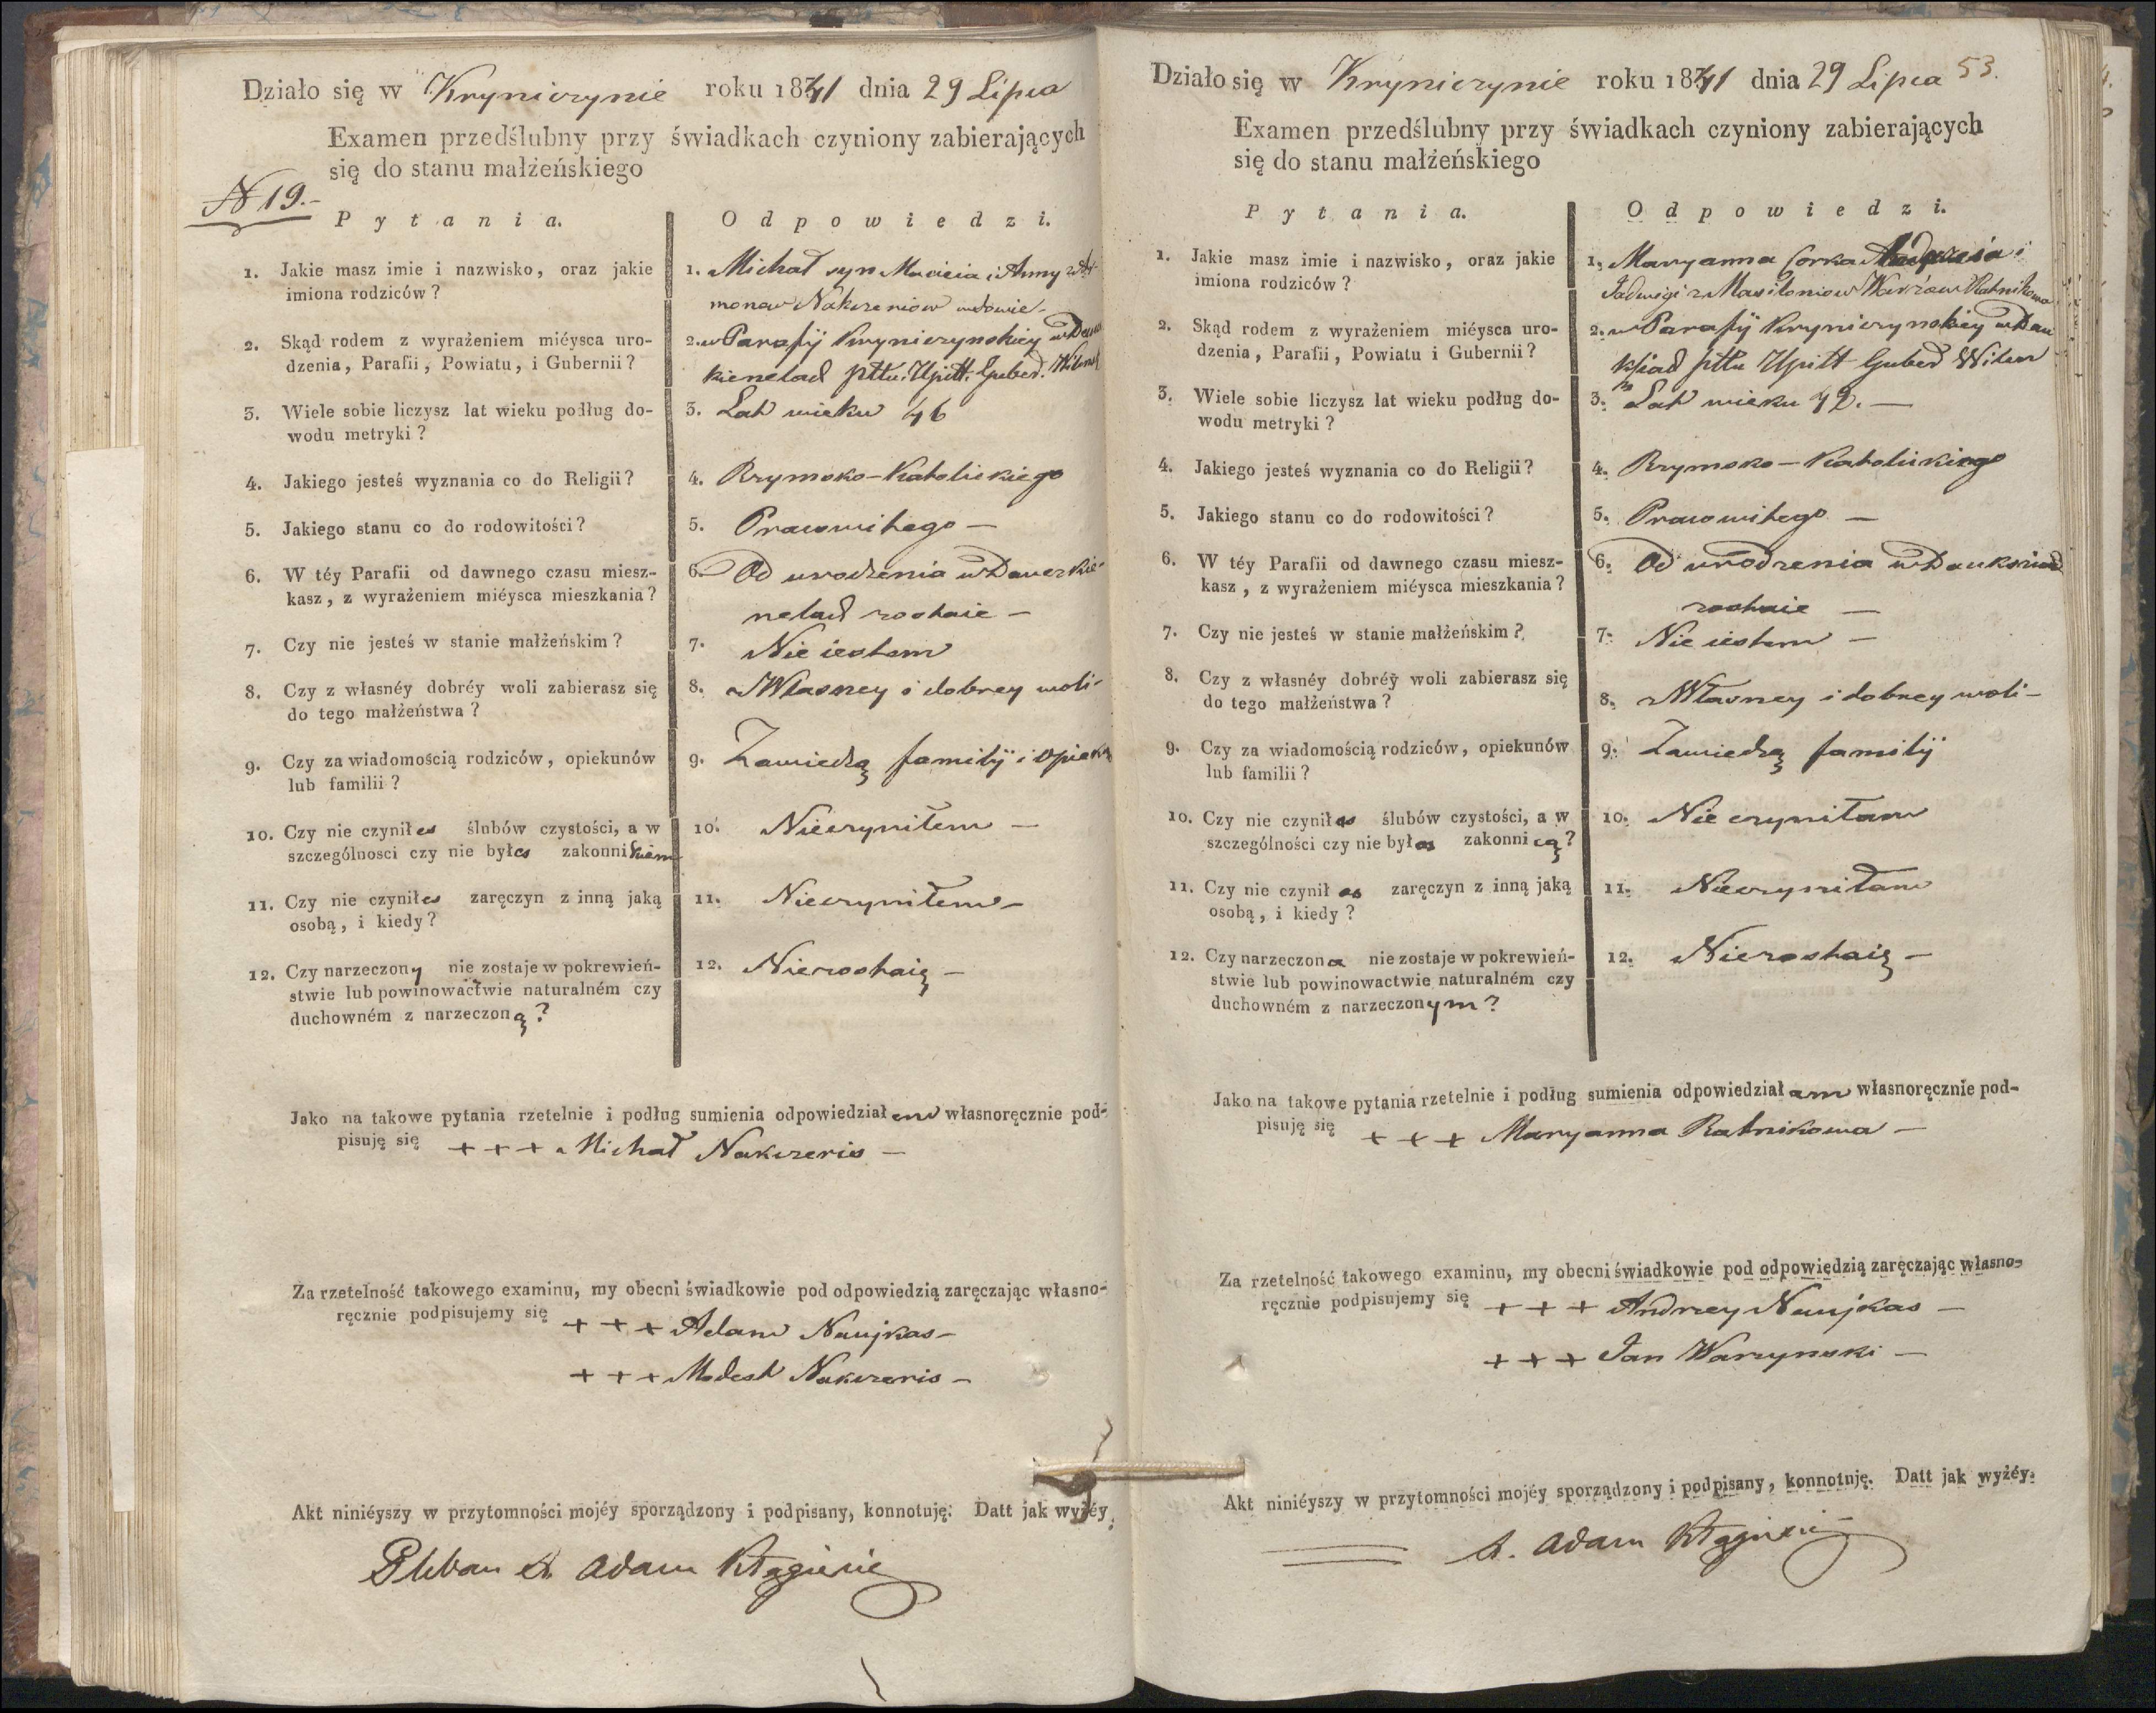 Działo się w Kryniczynie roku 1841 dnia 29 Lipca
Examen przedślubny przy świadkach czyniony zabierających
się do stanu małżeńskiego
N 19.-
Pytania.
Odpowiedzi.
1. Jakie masz imie i nazwisko, oraz jakie
imiona rodziców?
1. Michał syn Macieia i Anny z
monow Nakczeniow wdowiec-
2. Skąd rodem z wyrażeniem miéysca uro-
dzenia, Parafii, Powiatu, i Gubernii?
2. w Parafij Kryniczynskiey w
kienelach pttu. Upitt. Guber. Wilens
3. Wiele sobie liczysz lat wieku podług do-
wodu metryki?
3. Lat wieku 46
4. Jakiego jesteś wyznania co do Religii?
4. Rzymsko-Katolickiego
5. Jakiego stanu co do rodowitości?
5. Pracowitego -
6. W téy Parafii od dawnego czasu miesz-
kasz, z wyrażeniem miéysca mieszkania?
6. Od urodzenia w Dauczkie-
nelach zostaie -
7. Czy nie jesteś w stanie małżeńskim?
7. Nie iestem
8. Czy z własnéy dobréy woli zabierasz się
do tego małżeństwa?
8. Własney i dobrey woli-
9. Czy za wiadomością rodziców, opiekunów
lub familii?
9. Zawiedzą familij i opieku
10. Czy nie czyniłes ślubów czystości, a w
szczególnosci czy nie byłes zakonnikiem
10. Nieczyniłem -
11. Czy nie czyniłes zaręczyn z inną jaką
osobą, i kiedy?
11. Nieczyniłem -
12. Czy narzeczony nie zostaje w pokrewień-
stwie lub powinowactwie naturalném czy
duchowném z narzeczoną?
12. Niezostaię -
Jako na takowe pytania rzetelnie i podług sumienia odpowiedziałem własnoręcznie pod-
pisuję się + + + Michał Nakczeris -
Za rzetelność takowego examinu, my obecni świadkowie pod odpowiedzią zaręczając własno-
ręcznie podpisujemy się + + + Adam Naujkas -
+ + + Modest Nakczeris -
Akt niniéyszy w przytomności mojéy sporządzony i podpisany, konnotuję. Datt jak wyżéy.
Pleban X. Adam
53.
Działo się w Kryniczynie roku 1841 dnia 29 Lipca
Examen przedślubny przy świadkach czyniony zabierających
się do stanu małżeńskiego
Pytania.
Odpowiedzi.
1. Jakie masz imie i nazwisko, oraz jakie
imiona rodziców?
1. Maryanna Corka i
Jadwigi z Ratnikowa
2. Skąd rodem z wyrażeniem miéysca uro-
dzenia, Parafii, Powiatu i Gubernii?
2. w Parafij Kryniczynskiey w Dau
pttu Upitt Guber Wilen
3. Wiele sobie liczysz lat wieku podług do-
wodu metryki?
3. Lat wieku 42. -
4. Jakiego jesteś wyznania co do Religii?
4. Rzymsko-Katolickiego
5. Jakiego stanu co do rodowitości?
5. Pracowitego -
6. W téy Parafii od dawnego czasu miesz-
kasz, z wyrażeniem miéysca mieszkania?
6. Od urodzenia w
zostaie -
7. Czy nie jesteś w stanie małżeńskim?
7. Nie iestem -
8. Czy z własnéy dobréy woli zabierasz się
do tego małżeństwa?
8. Własney i dobrey woli-
9. Czy za wiadomością rodziców, opiekunów
lub familii?
9. Zawiedzą familij
10. Czy nie czyniłas ślubów czystości, a w
szczególności czy nie byłas zakonnicą?
10. Nie czyniłam
11. Czy nie czyniłas zaręczyn z inną jaką
osobą, i kiedy?
11. Nieczyniłam
12. Czy narzeczona nie zostaje w pokrewień-
stwie lub powinowactwie naturalném czy
duchowném z narzeczonym?
12. Niezostaię -
Jako na takowe pytania rzetelnie i podług sumienia odpowiedziałam własnoręcznie pod-
pisuję się + + + Maryanna Ratnikowa -
Za rzetelność takowego examinu, my obecni świadkowie pod odpowiedzią zaręczając własno-
ręcznie podpisujemy się + + + Andrzey Naujkas -
+ + + Jan Warzynski -
Akt niniéyszy w przytomności mojéy sporządzony i podpisany, konnotuję. Datt jak wyżéy.
X. Adam